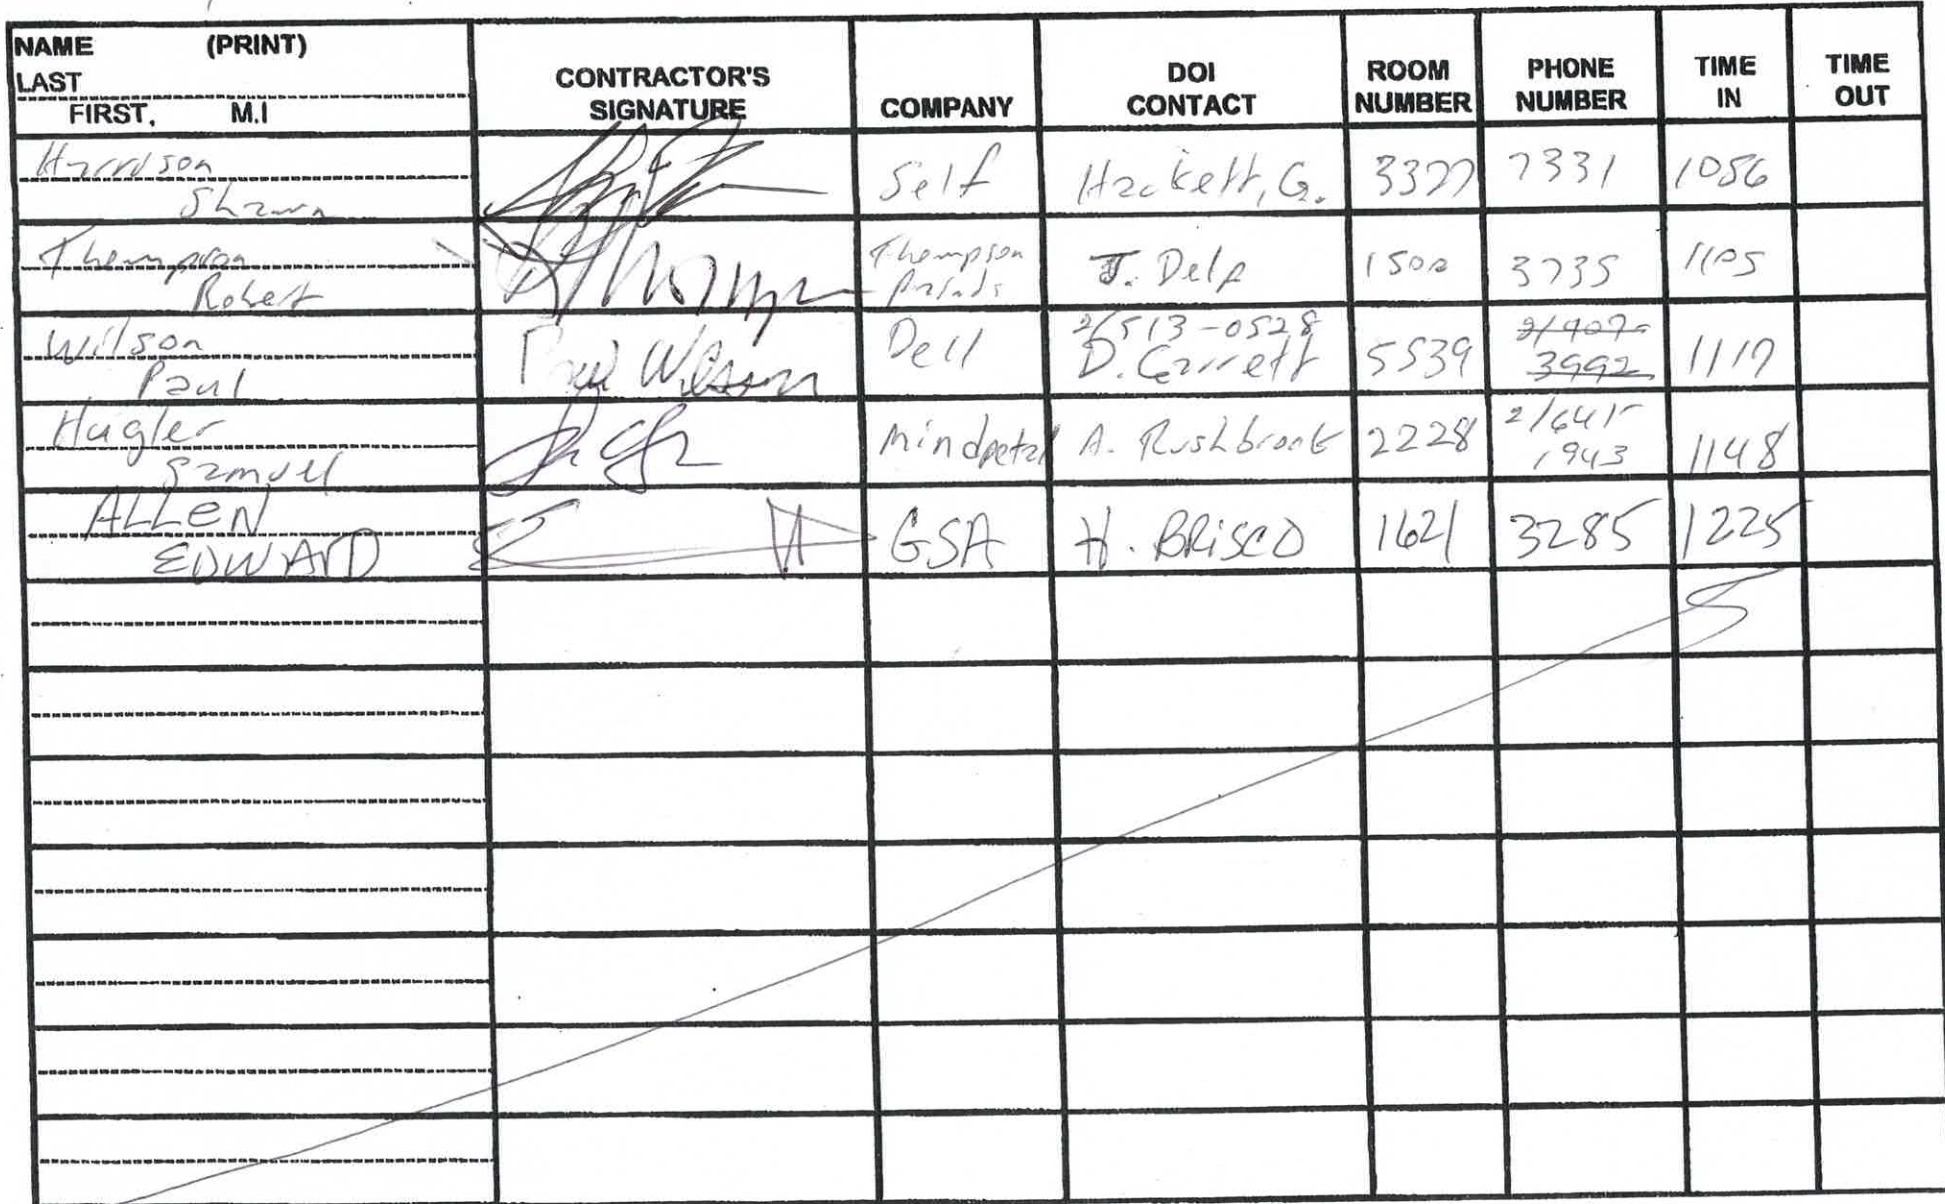 NAME (PRINT)
LAST
FIRST, M.I
CONTRACTOR'S
SIGNATURE
COMPANY
DOI
CONTACT
ROOM
NUMBER
PHONE
NUMBER
TIME
IN
TIME
OUT
Harrison
Shawn
Self
Hackett, G.
3327
7331
1056
Thompson
Robert
Thompson
J. Delp
1500
3735
1105
Wilson
Paul
Paul Wilson
Dell
2/513-0528
D. Garrett
5539
2/407-
3992
1117
Hugler
Samuel
Mindpetal
A. Rushbrook
2228
2/641-
1943
1148
ALLEN
EDWARD
GSA
H. BRISCO
1621
3285
1225